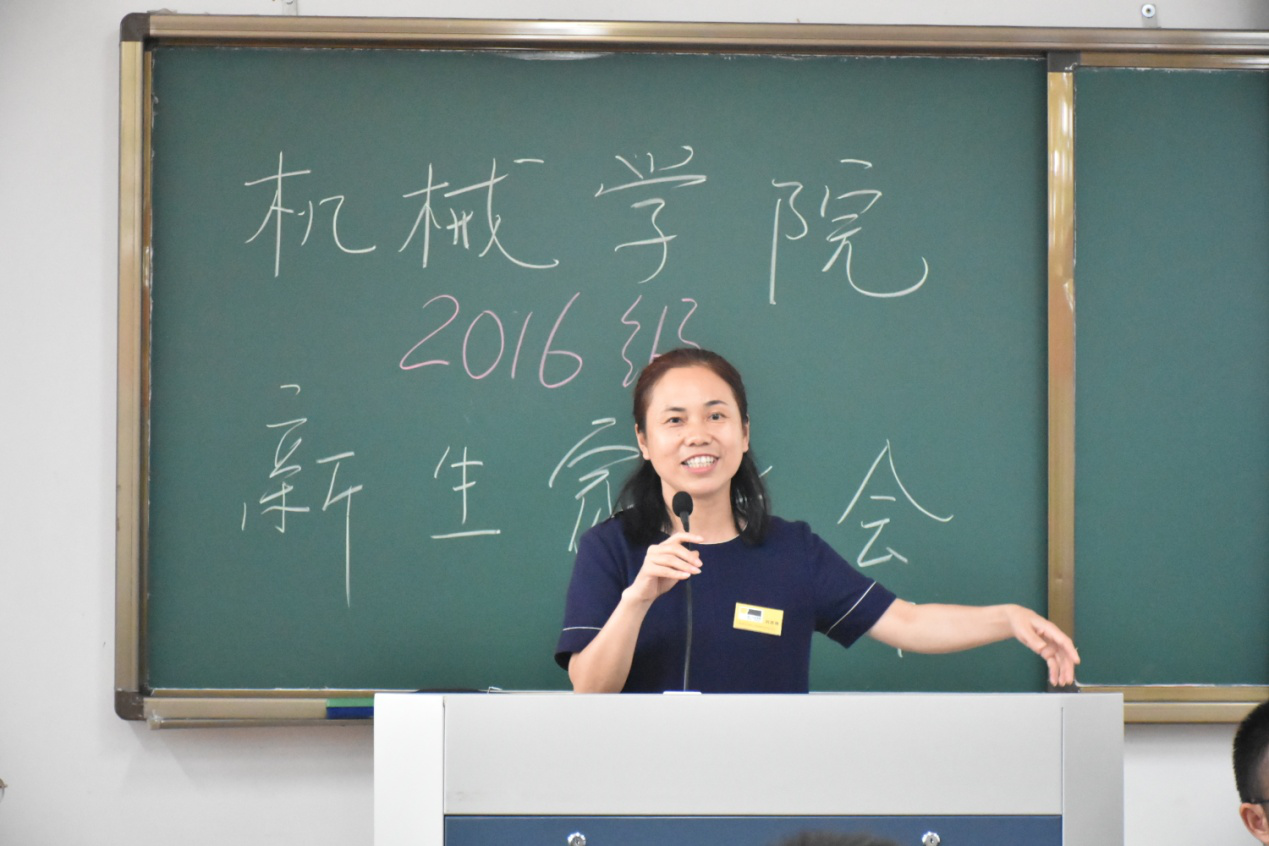 机械学院
2016级
新生家会